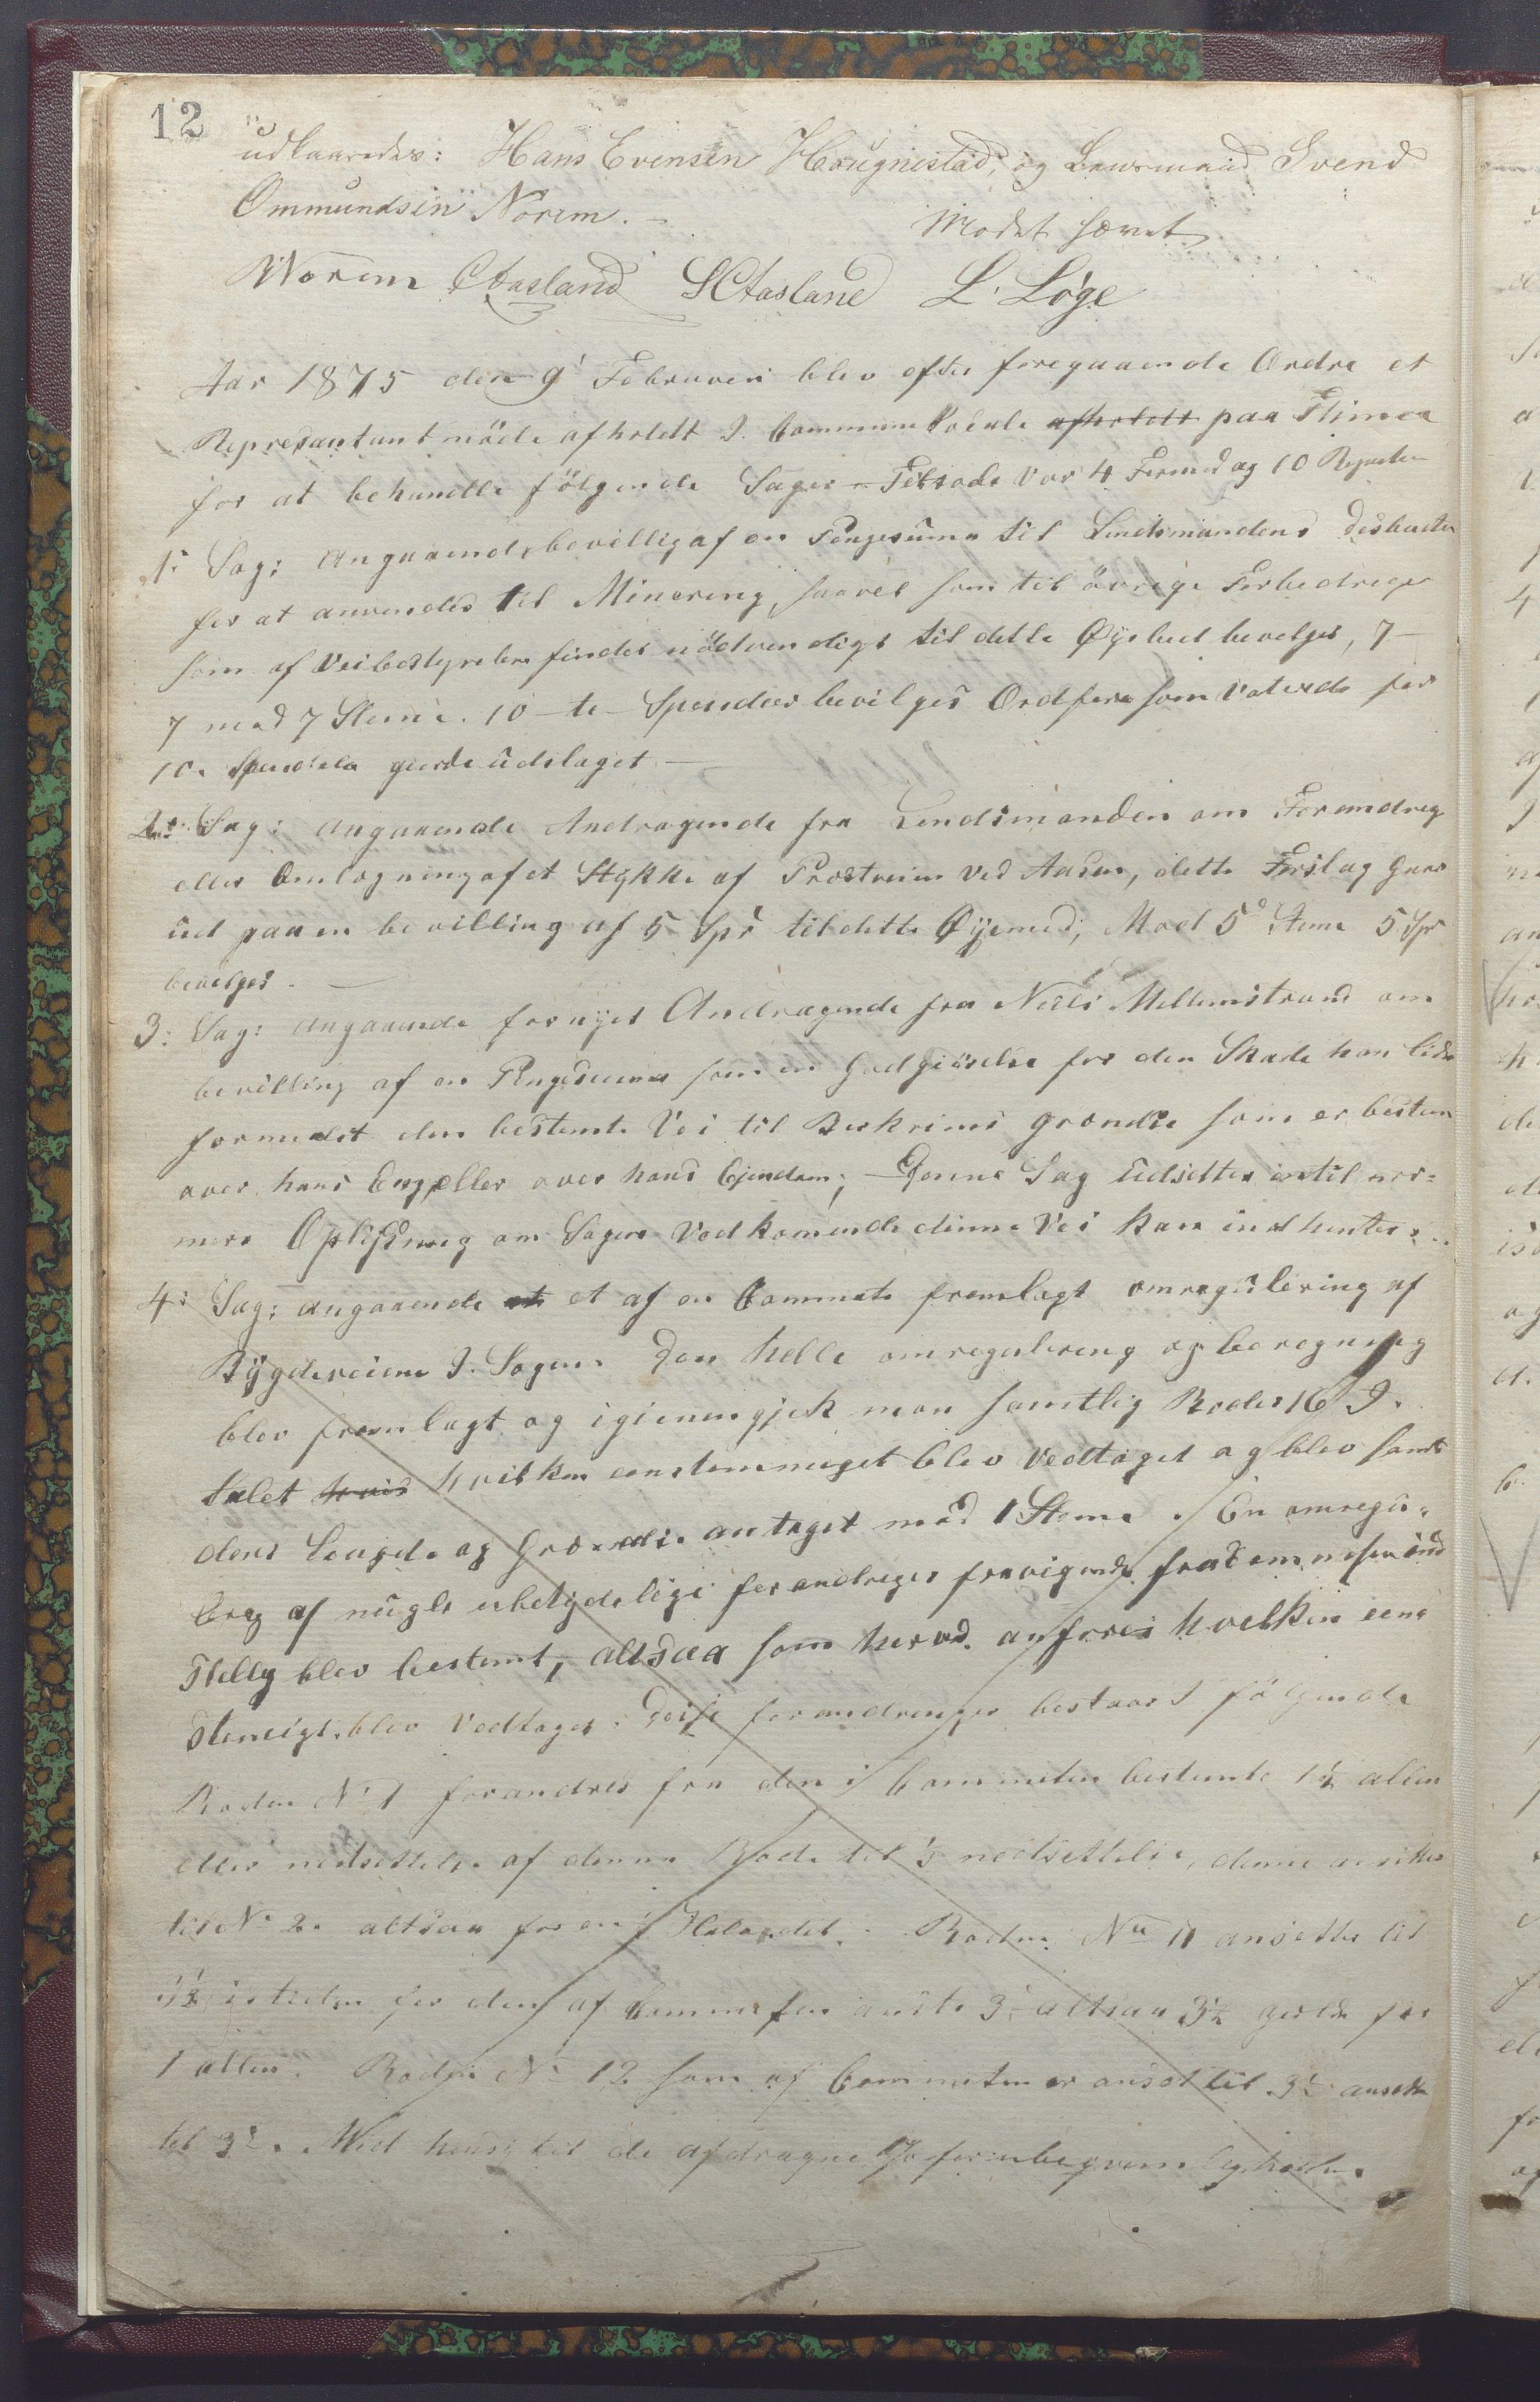 12
udkaaredes: Hans Evensen Haugnestad, og Lensmand Svend
Ommundsen Norem. —
Mødet hævet
Norem Aasland Aasland L. Løge
Aar 1875 den 9' Februari blev efter foregaaende Ordre et
Represantant möde afholdt I. Commune Localet afholdt paa
for at behandle fölgende Sager – Tilstede var 4 Formd og 10 Represt
1: Sag: Angaaende bevillig af en Pengesum til Lendsmandens
for at anvendes til Minering, saavel som til övrige Forbedringer
som af Veibestyrelsen findes nödvendigt til dette Øyebud bevelges, 7 –
7 mod 7 Steme. 10 – te – Spesidaler bevilges Ordfere som Voterede for
10. Spesidaler gjorde udslaget —
2: Sag: Angaaende Andragende fra Lendsmanden om Forandreg
eller Omlægning af et Stykke af Prostveien ved Aasen, dette Forslag gaar
ud paa en bevilling af 5 Spr til dette Øyemed, Mod 5 Steme 5 Spr
bevelges. —
3: Sag: Angaaende fornyet Andragende fra Neils Mellemstrand om
bevilling af en Pengesum som en Godgiörelse for den Skade han lider
formedelst den bestemte Vei til Berkreims grændse som er bestem
over hans Eng, eller over hans Ejendom; – Denne Sag udsettes intil nær-
mere Oplysning om Sagen vedkommende denne Vei kan indhentes.
4: Sag: Angaaende et et af en Commete fremlagt omregulering af
Bygdeveiene I. Sogne. Den hele omregulering og beregning
blev fremlagt og igienemgjek man samtlig Roder 16 I.
talet hvis hvilken enstemmiget blev Vedtaget og blev samt
dens Lengde og Grændse antaget mod 1 Steme. En omregu-
lreg af nugle ubetydelige forandreger fravigende fra Commeteens ind
stelleg blev bestemt, altsaa som herved anfores hvelken eens
stemigt blev Vedtaget. Desse forandrenger bestaar I fölgende
Roden No 1 forandres fra den i Commeten bestemte 1½ allen
eller nedsettelse af denne Rode til ⅓ nedsettelse, denne ansettes
til No 2. altsaa for en Roden No 11 ansettes til
3½ isteden for den af Commeten ansete 3 altsaa 3½ gjelder for
1 allen. Roden No 12 som af Commeten er ansat til 3½ ansette
til 3. Med hensy til de afdragne for ubeqvemligheder.